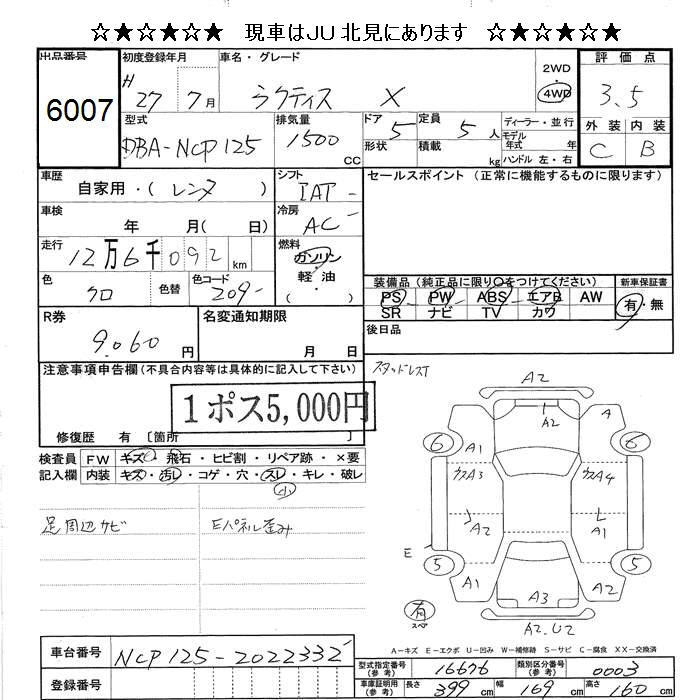 ☆★☆★☆★ 現車はJU 北見にあります ☆★☆★☆★
出品番号 初度登録年月 車名・グレード 評価点
6007 H 27 7月 ラクティス X 2WD 4WD 3.5
型式 排気量 ドア 定員 ディーラー・並行 外装 内装
DBA-NCP125 1500 CC 5 5 人 モデル年式 年 C B
形状 積載 kg ハンドル 左・右
車歴 シフト セールスポイント (正常に機能するものに限ります)
自家用・(レンタ) IAT
車検 冷房
年 月( 日) AC
走行 燃料
12万6千092 km ガソリン
軽・油
( )
色 色替 色コード 装備品 (純正品に限り○をつけてください) 新車保証書
クロ 209 PS PW ABS エアB AW 有・無
SR ナビ TV カワ
R券 名変通知期限 後日品
9.060 円 月 日
注意事項申告欄 (不具合内容等は具体的に記入して下さい) スタッドレスT
1ポス5,000円
修復歴 有 〔箇所 〕
検査員 FW キズ・飛石・ヒビ割・リペア跡・×要
記入欄 内装 キズ・汚レ・コゲ・穴・スレ・キレ・破レ
小
足周辺サビ Eパネル歪み
A2
A2 A
6 A1 6
ウスA3 ウスA4
A2 A1
E
5 A1 A2 5
A3
有 スペア
A2.U2
A-キズ E-エクボ U-凹み W-補修跡 S-サビ C-腐食 XX-交換済
車台番号 NCP125-2022332
型式指定番号 (参考) 16676 類別区分番号 (参考) 0003
登録番号 車庫証明用 (参考) 長さ 399 cm 幅 169 cm 高さ 160 cm